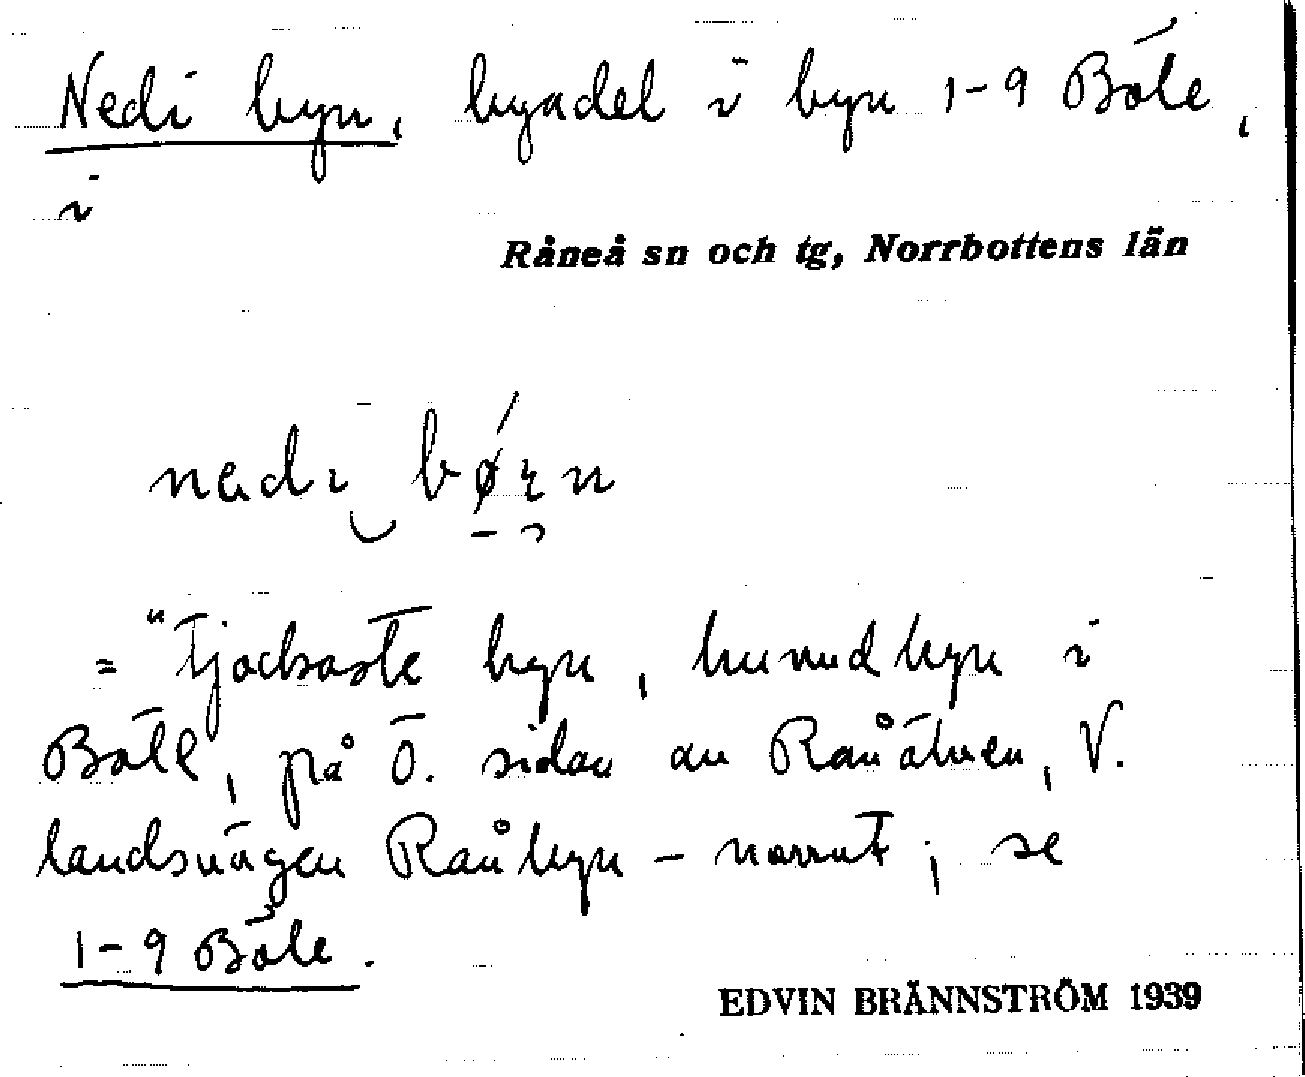 Nedi byn, byadel i byn 1-9 Böle,
i
Råneå sn och tg, Norrbottens län
nedi
= "Tjockaste byn, huvudbyn i
Böle", på Ö. sidan av Råneälven, V.
landsvägen Råneå byn – norrut; se
1-9 Böle.
EDVIN BRÄNNSTRÖM 1939